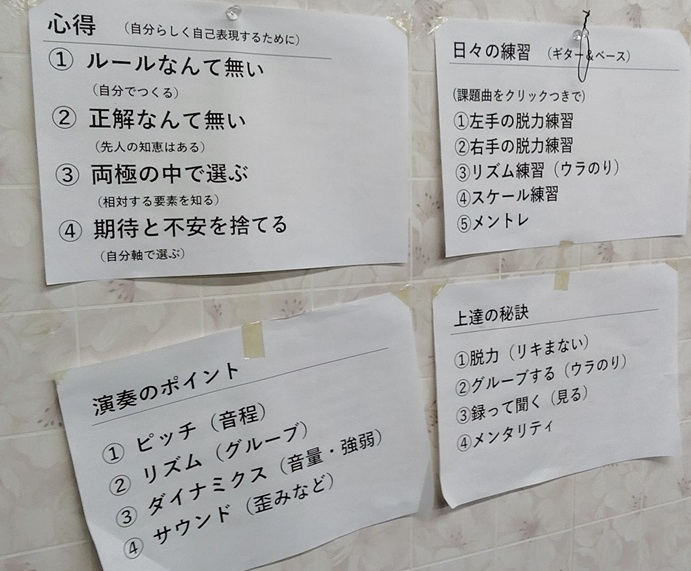 心得 （自分らしく自己表現するために）
① ルールなんて無い
（自分でつくる）
② 正解なんて無い
（先人の知恵はある）
③ 両極の中で選ぶ
（相対する要素を知る）
④ 期待と不安を捨てる
（自分軸で選ぶ）
日々の練習 （ギター&ベース）
(課題曲をクリックつきで)
①左手の脱力練習
②右手の脱力練習
③リズム練習（ウラのり）
④スケール練習
⑤メントレ
演奏のポイント
① ピッチ（音程）
② リズム（グルーブ）
③ ダイナミクス（音量・強弱）
④ サウンド（歪みなど）
上達の秘訣
①脱力（リキまない）
②グルーブする（ウラのり）
③録って聞く（見る）
④メンタリティ